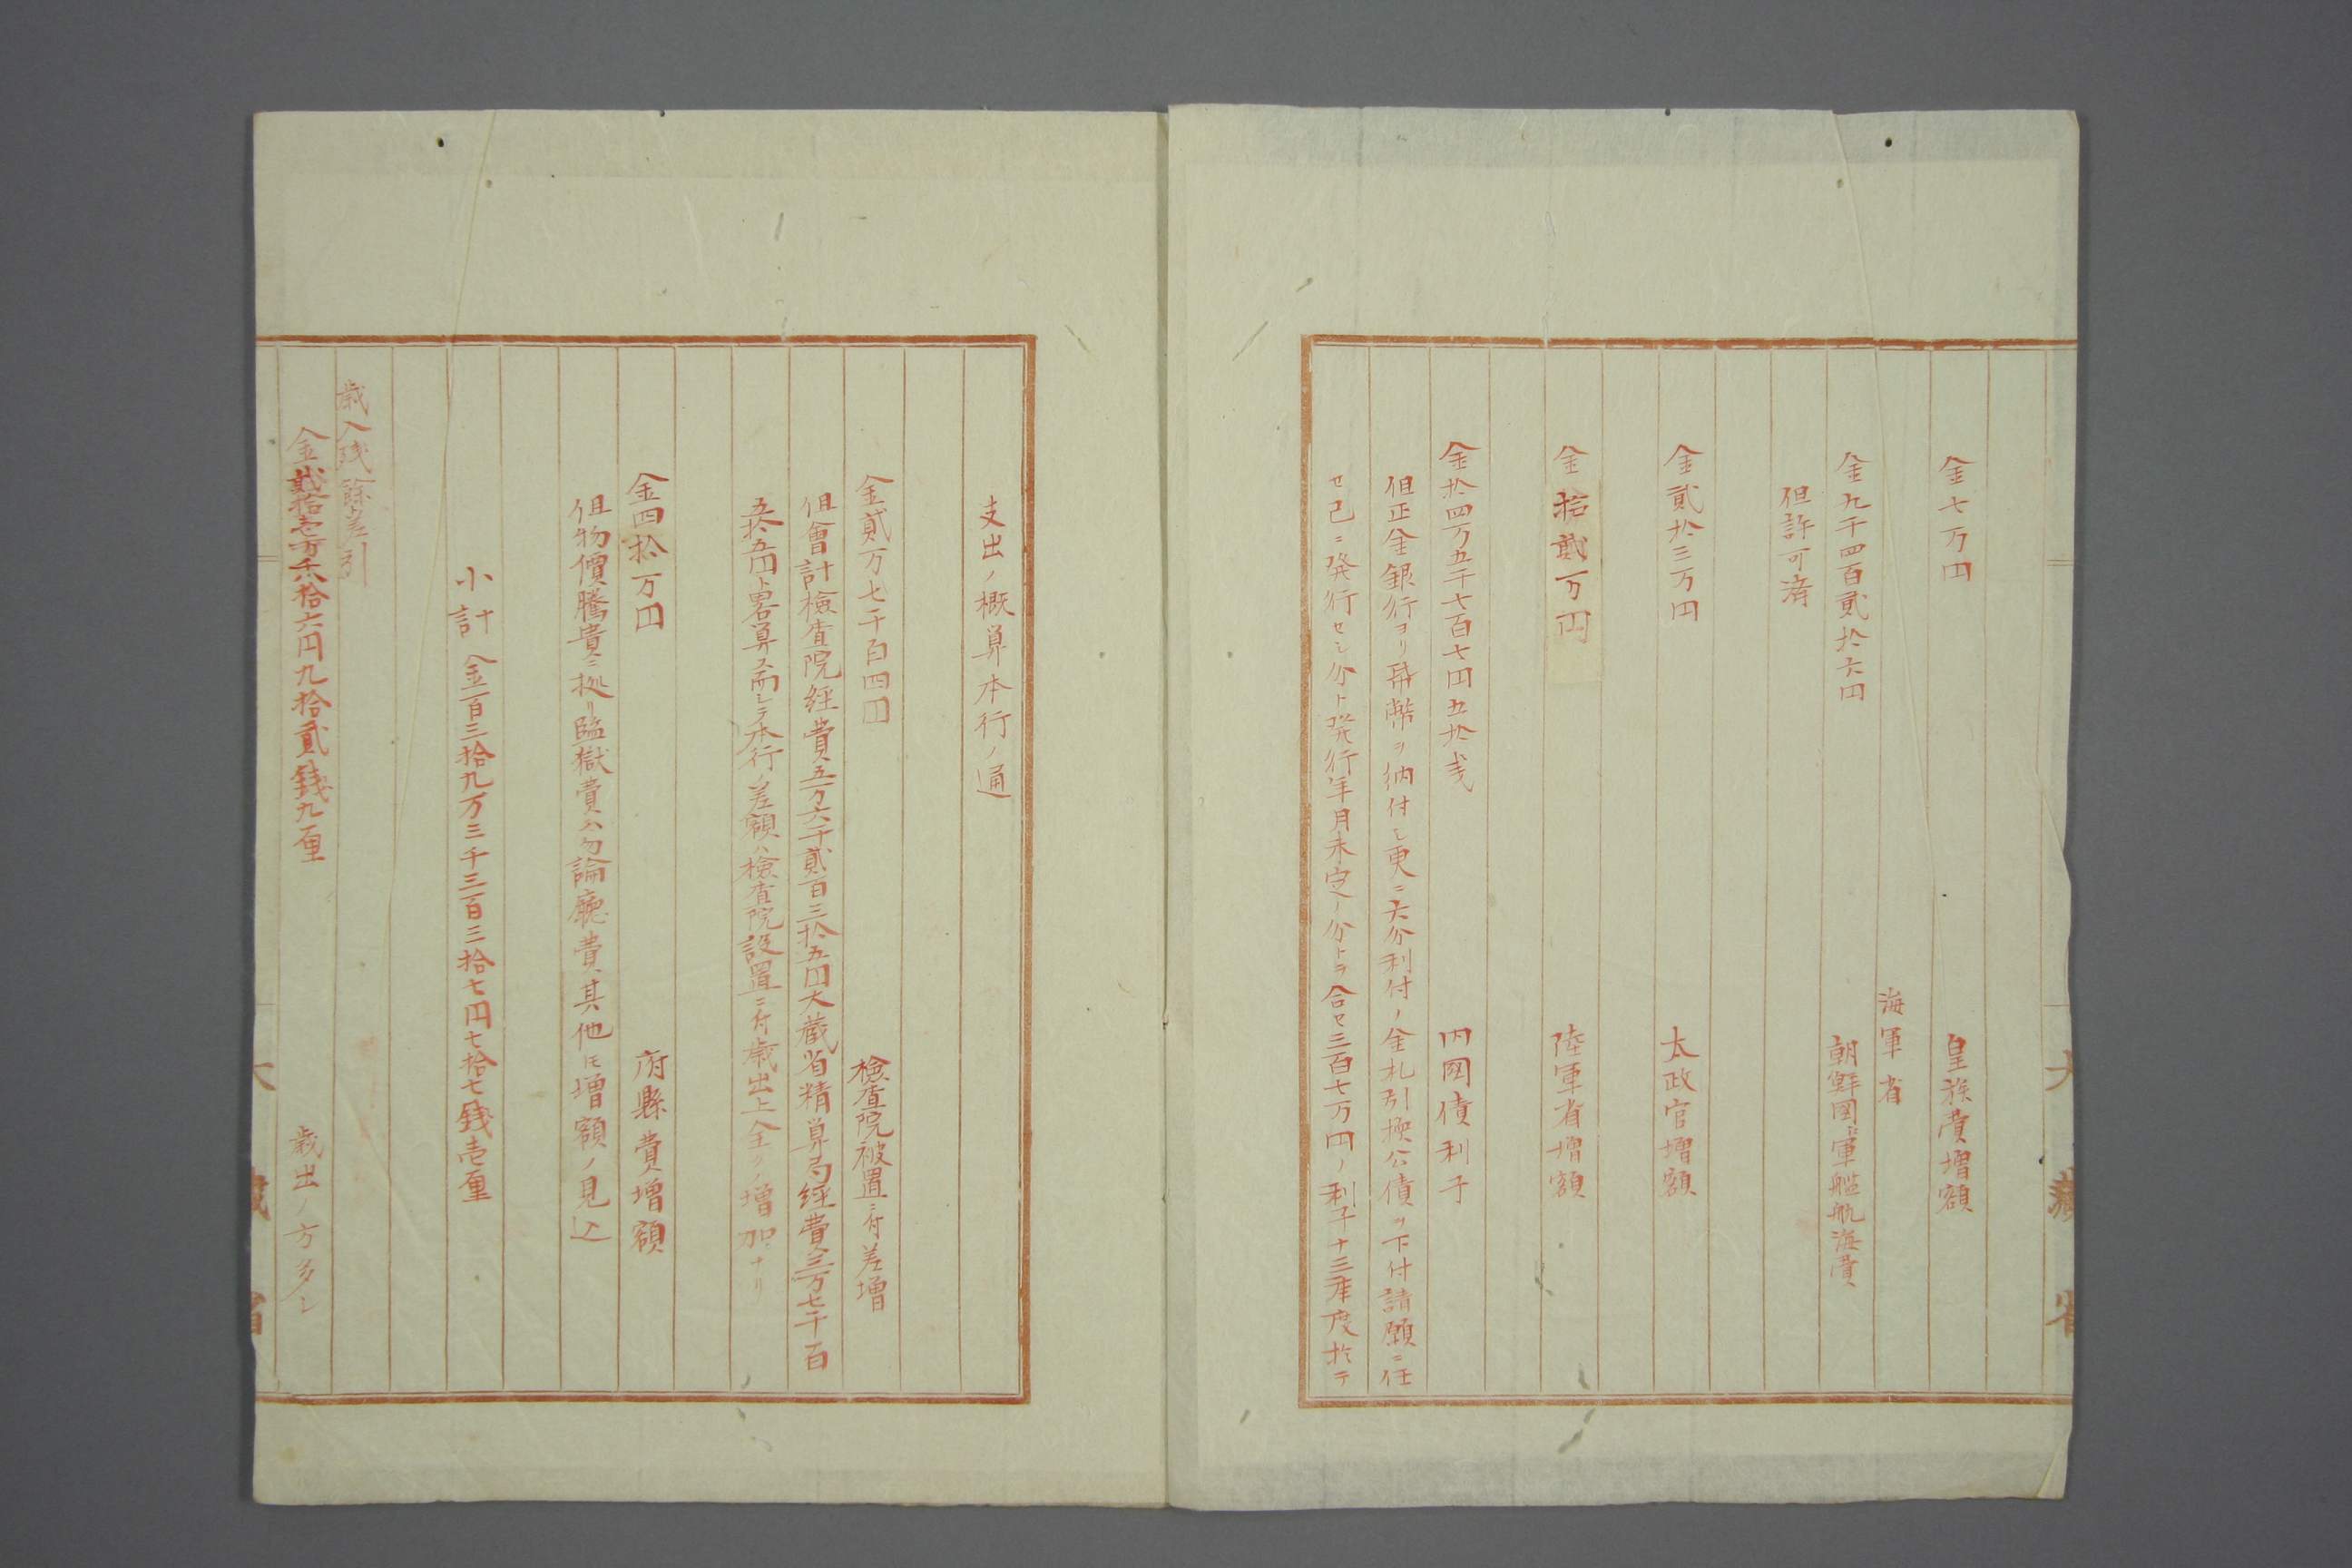 金七万円　皇族費増額
海軍省
金九千四百貳拾六円　朝鮮国ヘ軍艦航海費
但許可済
金貳拾三万円　太政官増額
金拾貳万円　陸軍省増額
金拾四万五千七百七円五拾戋　内国債利子
但正金銀行ヨリ昇幣ヲ納付シ更ニ六分利付ノ金札引換公債ヲ下付請願ニ任
セ已ニ発行セシ分ト発行年月未定ノ分トヲ合セ三百七万円ノ利子十三年度於テ
大藏省
支出ノ概算本行ノ通
金貳万七千百四円　檢査院被置ニ付差増
但會計檢査院経費五万六千貳百三拾五円大蔵省精算局経費三万七千百
五拾五円ト畧算ス而シテ本行ノ差額ハ檢査院設置ニ付歳出上全クノ増加ナリ
金四拾万円　府縣費増額
但物價騰貴ニ拠リ監獄費ハ勿論廳費其他ニモ増額ノ見込
小計　金百三拾九万三千三百三拾七円七拾七錢壱厘
歳入残餘差引
金貳拾壱万千八拾六円九拾貳錢九厘　歳出ノ方多シ
大藏省